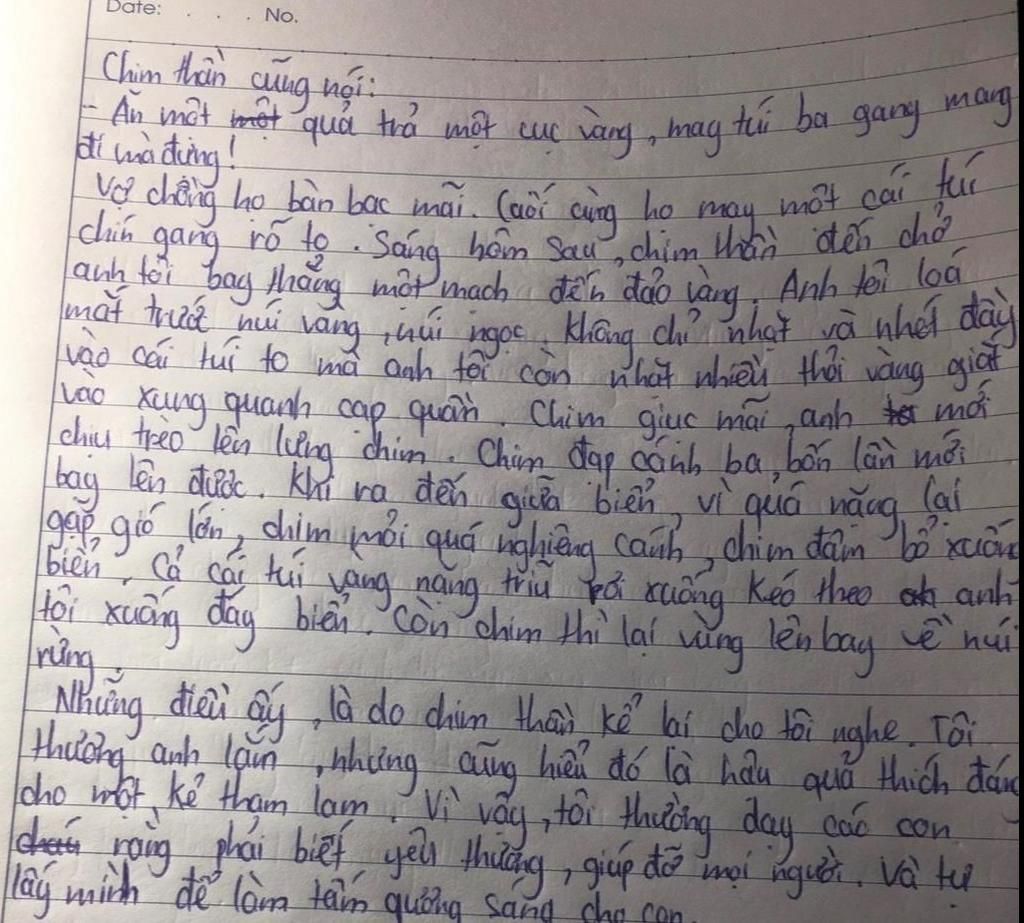 Date: . . . . No.
Chim thần cũng nói:
- Ăn một một quả trả một cục vàng, may túi ba gang mang
đi mà đựng!
Vợ chồng họ bàn bạc mãi. Cuối cùng họ may một cái túi
chín gang rõ to. Sáng hôm sau, chim thần đến chở
anh tôi bay thẳng một mạch đến đảo vàng. Anh tôi loá
mắt trước núi vàng, núi ngọc. Không chỉ nhặt và nhét đầy
vào cái túi to mà anh tôi còn nhặt nhiều thỏi vàng giắt
vào xung quanh cạp quần. Chim giục mãi, anh mới
chịu trèo lên lưng chim. Chim đạp cánh ba, bốn lần mới
bay lên được. Khi ra đến giữa biển, vì quá nặng lại
gặp gió lớn, chim mỏi quá nghiêng cánh, chim đâm bổ xuống
biển. Cả cái túi vàng nặng trĩu rơi xuống kéo theo anh
tôi xuống đáy biển. Còn chim thì lại vùng lên bay về núi
rừng.
Những điều ấy, là do chim thần kể lại cho tôi nghe. Tôi
thương anh lắm, nhưng cũng hiểu đó là hậu quả thích đán
cho một kẻ tham lam. Vì vậy, tôi thường dạy các con
rằng phải biết yêu thương, giúp đỡ mọi người. Và tự
lấy mình để làm tấm gương sáng cho con.